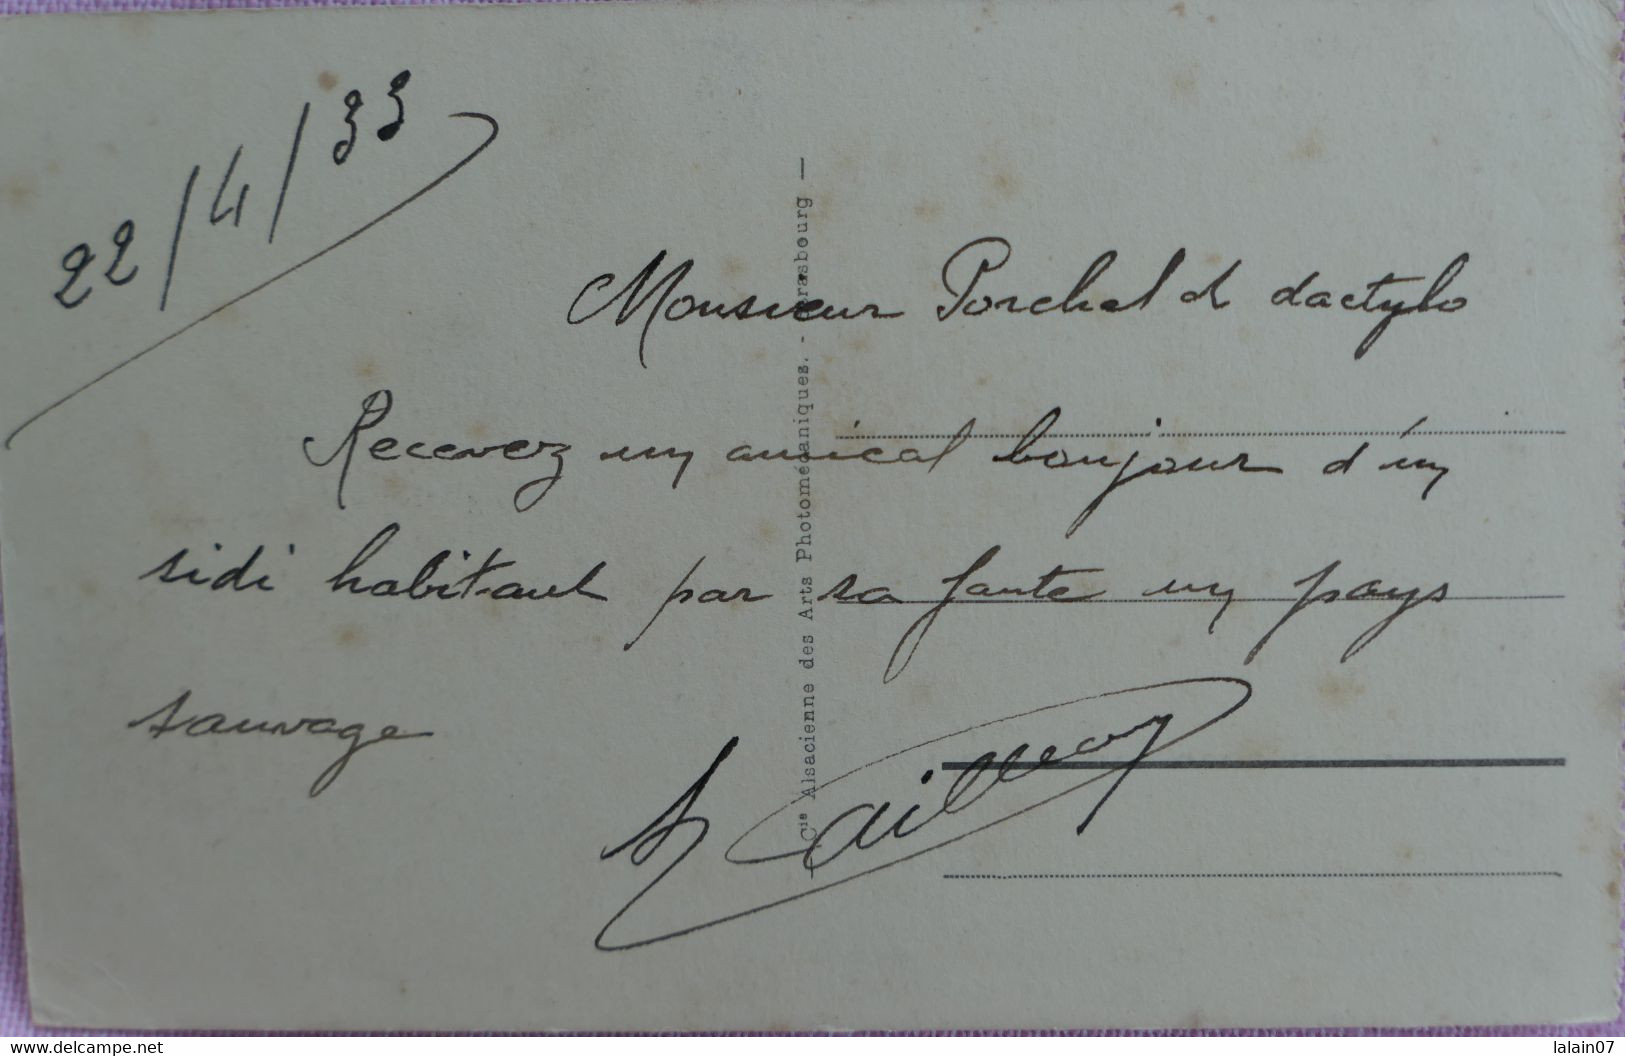 22/4/33
Monsieur Porchel et dactylo
Recevez un amical bonjour d'un
sidi habitant par sa faute un pays
sauvage
Cie Alsacienne des Arts Photomécaniques. - Strasbourg —
www.delcampe.net
lalain07